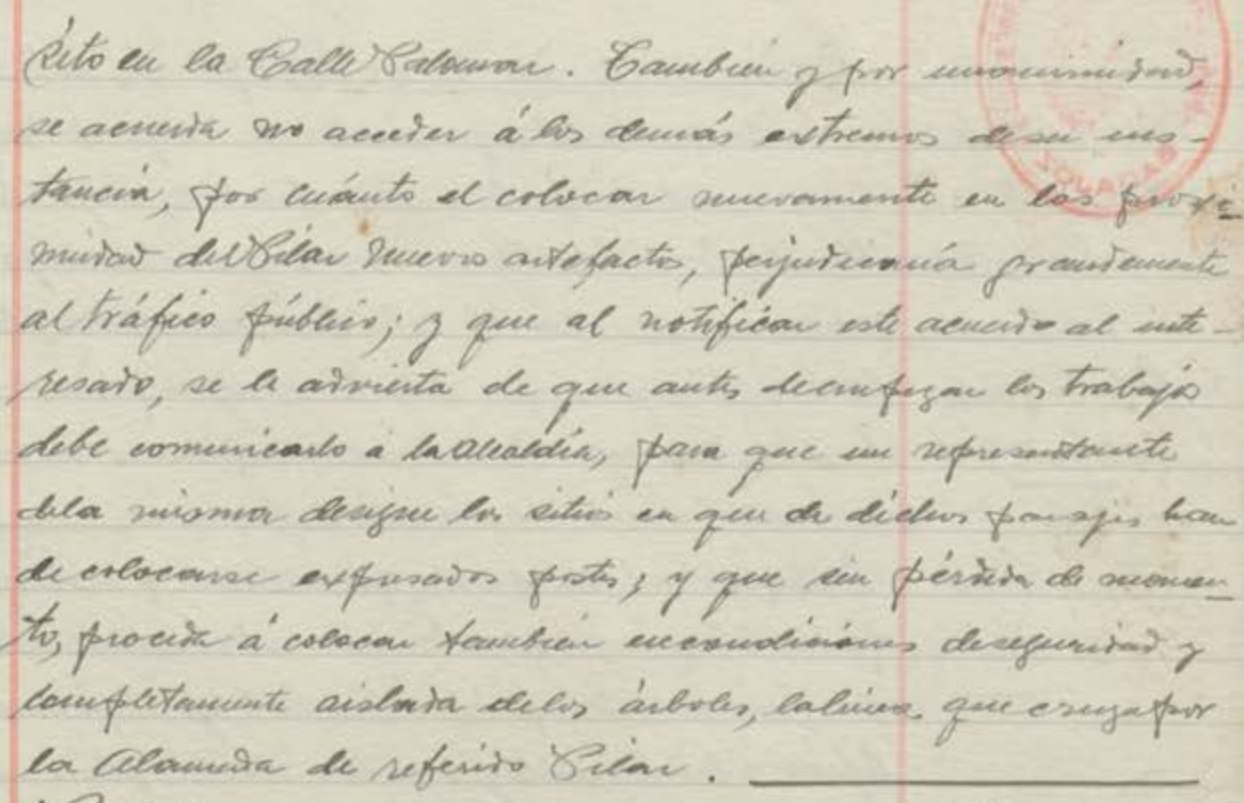 sito en la Calle Palomar. También y por unanimidad,
se acuerda no acceder á los demás extremos de su ins-
tancia, por cuánto el colocar nuevamente en las proxi-
midad del Pilar Nuevo artefactos, perjudicaría grandemente
al tráfico público; y que al notificar este acuerdo al inte-
resado, se le advierta de que antes de empezar los trabajos
debe comunicarlo á la Alcaldía, para que un representante
de la misma designe los sitios en que de dichos parajes han
de colocarse expresados postes; y que sin pérdida de momen-
to, proceda á colocar también en condiciones de seguridad y
completamente aislada de los árboles, la línea que cruza por
la Alameda de referido Pilar.